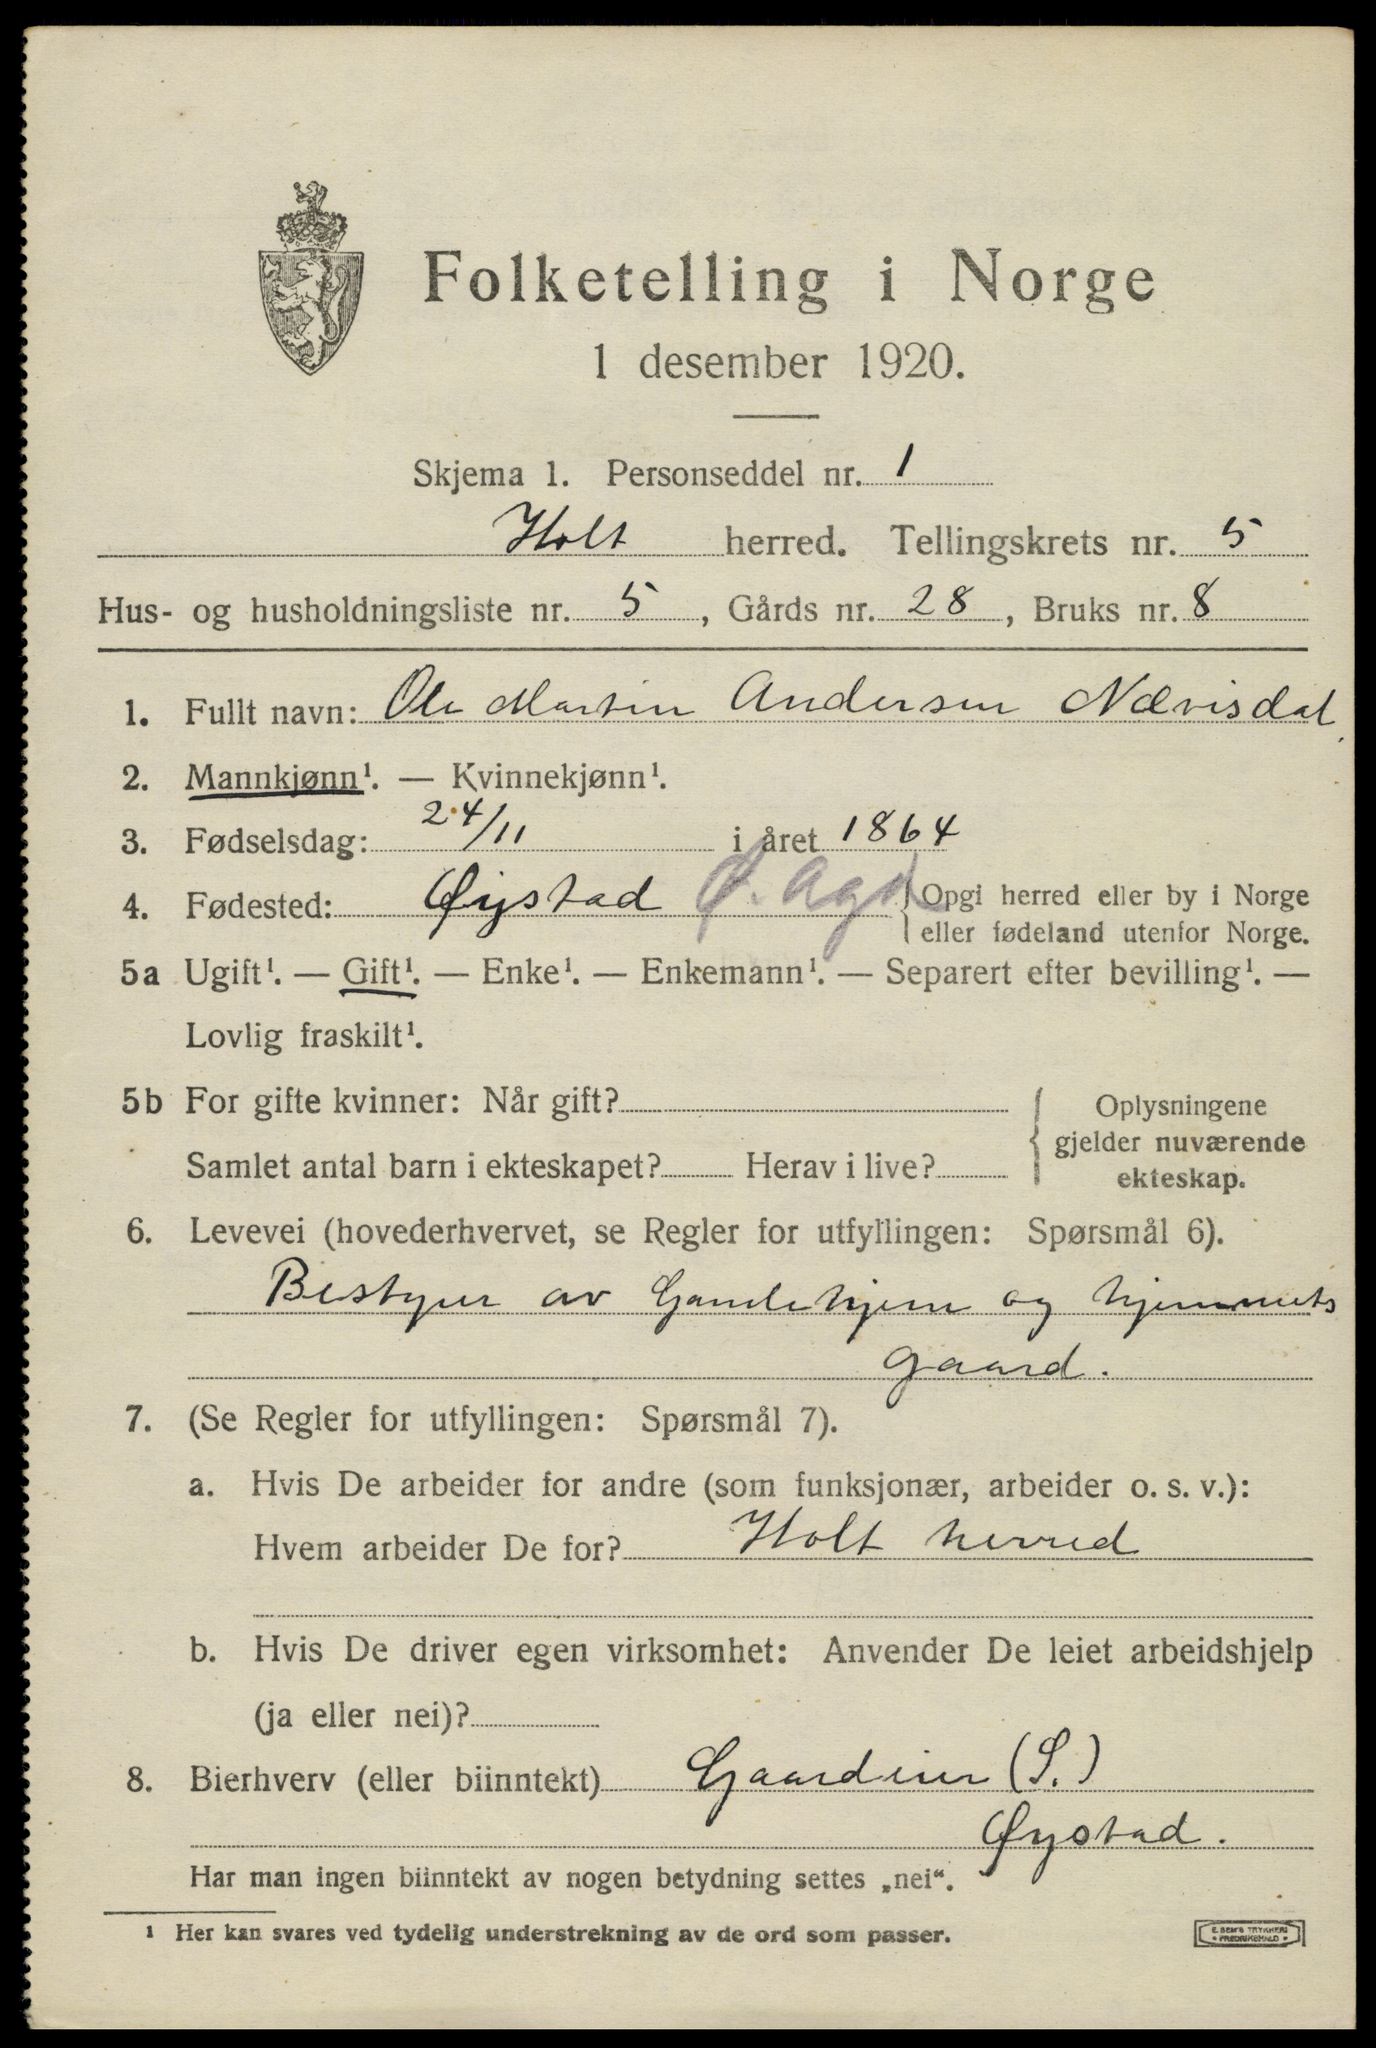 Folketelling i Norge
1 desember 1920.
Skjema 1. Personseddel nr. 1
Holt herred. Tellingskrets nr. 5
Hus- og husholdningsliste nr. 5, Gårds nr. 28, Bruks nr. 8
1. Fullt navn: Ole Martin Andersen Nævisdal
2. Mannkjønn¹. — Kvinnekjønn¹.
3. Fødselsdag: 24/11 i året 1864
4. Fødested: Øystad Ø. Agd {Opgi herred eller by i Norge
eller fødeland utenfor Norge.
5a Ugift¹. — Gift¹. — Enke¹. — Enkemann¹. — Separert efter bevilling¹. —
Lovlig fraskilt¹.
5b For gifte kvinner: Når gift?
Samlet antal barn i ekteskapet? Herav i live?
Oplysningene
gjelder nuværende
ekteskap.
6. Levevei (hovederhvervet, se Regler for utfyllingen: Spørsmål 6).
Bestyrer av Gamlehjem og hjemmets
gaard.
7. (Se Regler for utfyllingen: Spørsmål 7).
a. Hvis De arbeider for andre (som funksjonær, arbeider o. s. v.):
Hvem arbeider De for? Holt herred
b. Hvis De driver egen virksomhet: Anvender De leiet arbeidshjelp
(ja eller nei)?
8. Bierhverv (eller biinntekt) Gaardeier (S.)
Øystad.
Har man ingen biinntekt av nogen betydning settes „nei“.
¹ Her kan svares ved tydelig understrekning av de ord som passer.
E. SEM'S TRYKKERI
FREDRIKSHALD